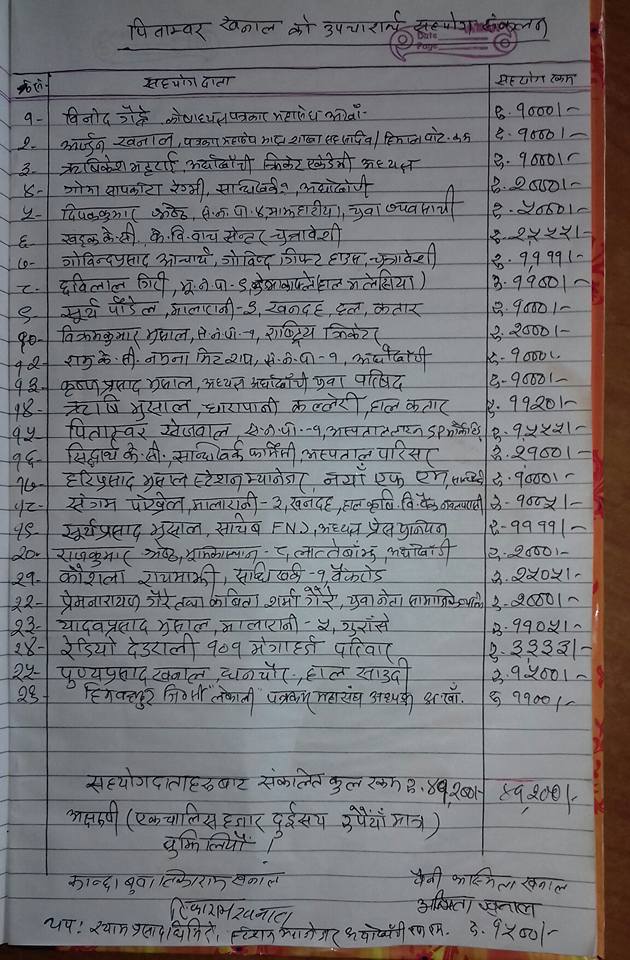 पिताम्वर खनाल को उपचारार्थ सहयोग संकलन
Date
Page
क्र.सं. सहयोग दाता सहयोग रकम
१- विनोद गैह्रे कोषाध्यक्ष पत्रकार महासंघ अर्घा- रु. १०००।-
२- अर्जुन खनाल, पत्रकार महासंघ रु. १०००।-
३- ऋषिकेश भट्टराई, अर्घाखाँची क्रिकेट एकेडेमी अध्यक्ष रु. १०००।-
४- गोमा थापकोटा रेग्मी, सन्धिखर्क, अर्घाखाँची रु. २०००।-
५- दिपककुमार श्रेष्ठ, स.न.पा. ४, युवा व्यवसायी रु. ५०००।-
६- खड्क के.सी., के.वि. वाच सेन्टर चुत्रावेशी रु. २५५५।-
७- गोविन्दप्रसाद आचार्य, गोविन्द गिफ्ट हाउस, चुत्रावेशी रु. ११११।-
८- दविलाल गिरी, भू.न.पा- ६, (हाल मलेसिया) रु. ११००।-
९- सूर्य पौडेल, मालारानी- ३, खनदह, हाल, कतार रु. १०००।-
१०- विक्रमकुमार भुसाल, सं.न.पा- १, राष्ट्रिय क्रिकेटर रु. २०००।-
१२- रामु के.सी. नमुना मिट शप, सं.न.पा- १, अर्घाखाँची रु. १०००।-
१३- कृष्णप्रसाद भुसाल, अध्यक्ष अर्घाखाँची युवा परिषद रु. १०००।-
१४- ऋषि भुसाल, धारापानी कल्लेरी, हाल कतार रु. ११२०।-
१५- पिताम्वर खनाल सं.न.पा. -१, अस्पताल लाइन रु. १५५५।-
१६- सिद्धार्थ के.सी., सन्धिखर्क फार्मेसी, अस्पताल परिसर रु. २१००।-
१७- हरिप्रसाद भुसाल स्टेशन म्यानेजर, नयाँ एफ एम, रु. १०००।-
१८- संगम पोखेल, मालारानी- २, खनदह, हाल कृषि. वि. बैंक नवलपरासी रु. १००५।-
१९- सूर्यप्रसाद भुसाल, सचिव FNJ, अध्यक्ष प्रेस युनियन रु. ११११।-
२०- राजकुमार श्रेष्ठ, - ८, लात्तेबाँझ, अर्घाखाँची रु. २०००।-
२१- कौशिला रायमाझी, सन्धिखर्क- १, बैंकरोड रु. २५०५।-
२२- प्रेमनारायण गैरे तथा कविता शर्मा गैरे, युवा नेता रु. २०००।-
२३- यादवप्रसाद भुसाल, मालारानी- ५, गुरांसे रु. ११०५।-
२४- रेडियो देउराली १०१ मेगाहर्ज परिवार रु. ३३३३।-
२५- पुण्यप्रसाद खनाल, धनचौर, हाल साउदी रु. १५००।-
२६- पत्रकार महासंघ अध्यक्ष अर्घा. रु. ११००।-
सहयोगदाताहरुबाट संकलित कुल रकम रु. ४१,२००।- ४१,२००।-
अक्षरुपी (एकचालिस हजार दुईसय रुपैयाँ मात्र)
बुझिलियौं ।
कान्छा बुवा टिकाराम खनाल बैनी अस्मिता खनाल
टिकाराम खनाल अस्मिता खनाल
थप: श्यामप्रसाद घिमिरे, स्टेशन म्यानेजर अर्घाखाँची एफ.एम. रु. १५००।-